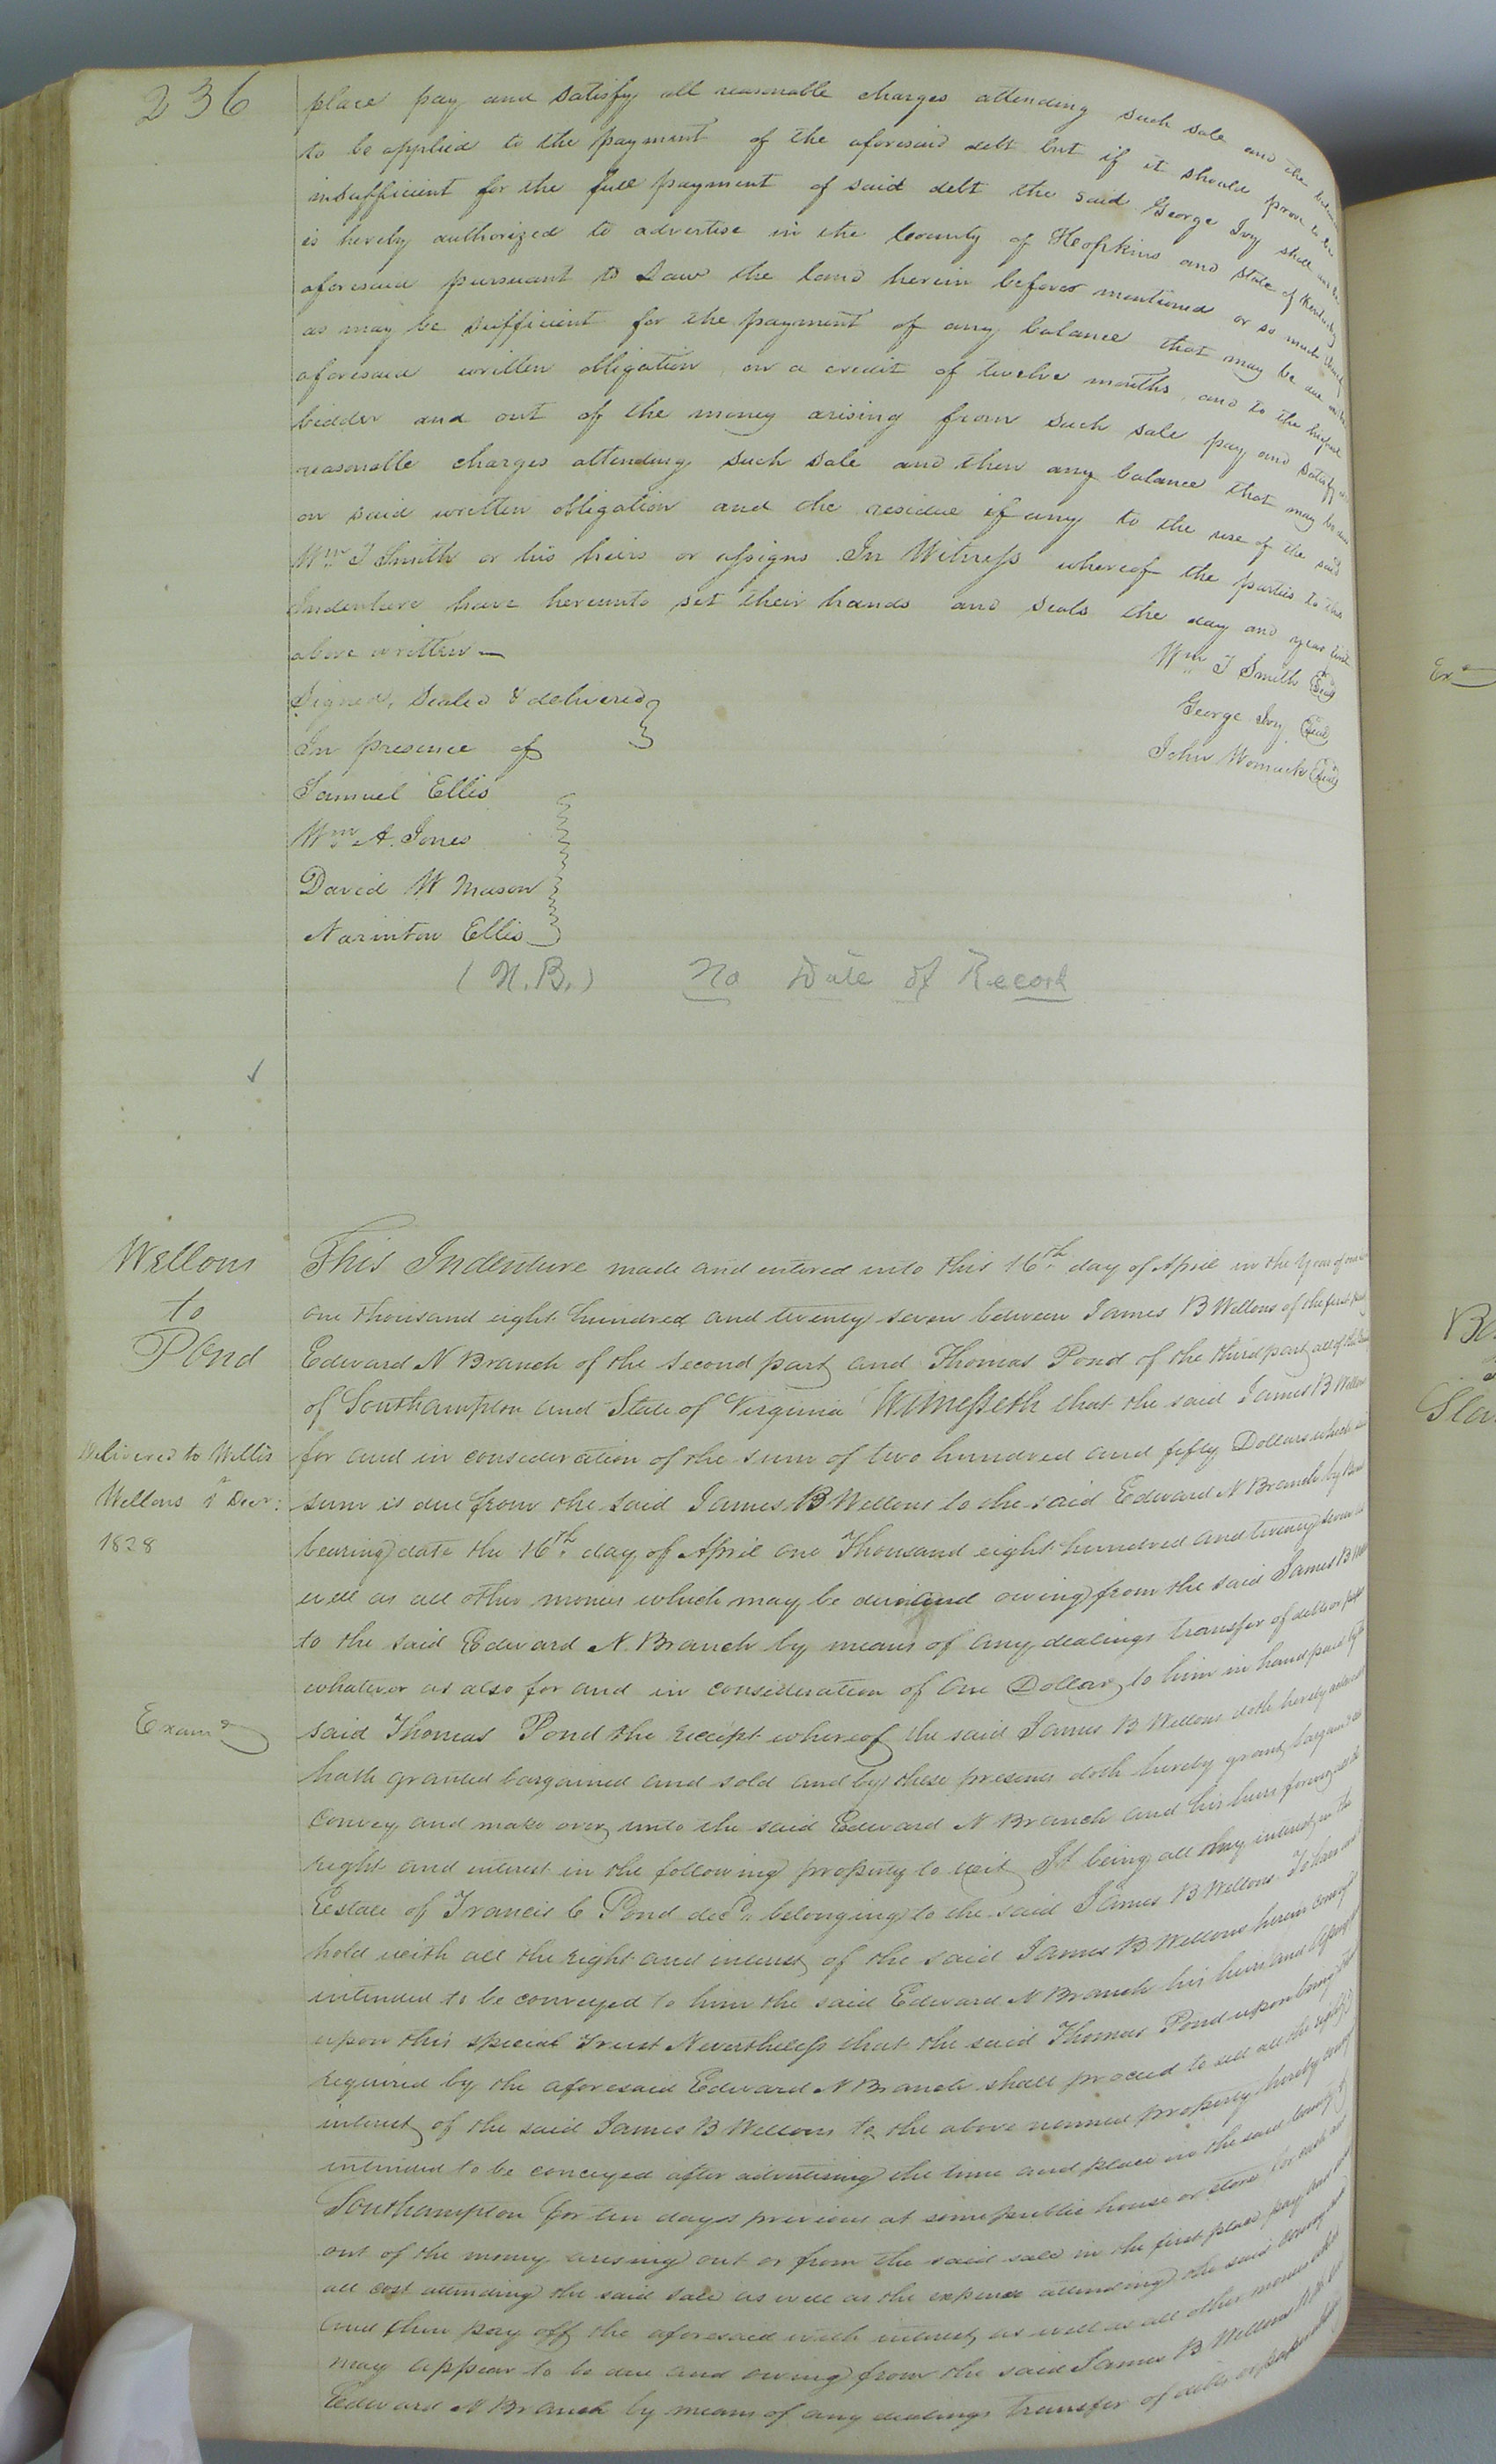 236
place pay and satisfy all reasonable charges attending such sale and the
to be applied to the payment of the aforesaid debt but if it should prove to be
insufficient for the full payment of said debt the said George Ivy shall and he
is hereby authorized to advertise in the County of Hopkins and State of Kentucky
aforesaid pursuant to Law the land herein before mentioned or so much
as may be sufficient for the payment of any balance that may be due on the
aforesaid written obligation on a credit of twelve months, and to the highest
bidder and out of the money arising from such sale pay and satisfy
reasonable charges attending such sale and then any balance that may be due
on said written obligation and the residue if any to the use of the said
Wm. T Smith or his heirs or assigns In Witness whereof the parties to this
Indenture have hereunto set their hands and seals the day and year first
above written —
Wm T Smith (Seal)
Signed, Sealed & delivered
George Ivy (Seal)
In presence of
John Womack (Seal)
Samuel Ellis
Wm A. Jones
David W Mason
Narinton Ellis
(N.B.) No Date of Record
Wellons
to
Pond
This Indenture made and entered into this 16th day of April in the year of our
one thousand eight hundred and twenty seven between James B Wellons of the first part
Edward N Branch of the second part and Thomas Pond of the third part all of the
of Southampton and State of Virginia Witnesseth that the said James B Wellons
Delivered to Willis
for and in consideration of the sum of two hundred and fifty Dollars which
Wellons Decr:
sum is due from the said James B Wellons to the said Edward N Branch by Bond
1828
bearing date the 16th day of April one Thousand eight hundred and twenty seven as
well as all other monies which may be due and owing from the said James B
to the said Edward N. Branch by means of any dealings transfer of debts or
whatever as also for and in consideration of one Dollar to him in hand paid by the
Examd
said Thomas Pond the receipt whereof the said James B Wellons doth hereby
hath granted bargained and sold and by these presents doth hereby grant, bargain
convey and make over unto the said Edward N Branch and his heirs forever
right and interest in the following property to wit It being all my interest in the
Estate of Francis C Pond decd. belonging to the said James B Wellons. To have and
hold with all the right and interest of the said James B Wellons herein
intended to be conveyed to him the said Edward N Branch his heirs and assigns
upon this special Trust Nevertheless that the said Thomas Pond upon being
required by the aforesaid Edward N Branch shall proceed to sell all the right
interest of the said James B Wellons to the above named property hereby
intended to be conveyed after advertising the time and place in the said County of
Southampton for ten days previous at some public house or store for cash and
out of the money arising out or from the said sale in the first place pay
all cost attending the said sale as well as the expense attending the said
and then pay off the aforesaid with interest, as well as all other monies which
may appear to be due and owing from the said James B Wellons to the
Edward N Branch by means of any dealings transfer of debts or